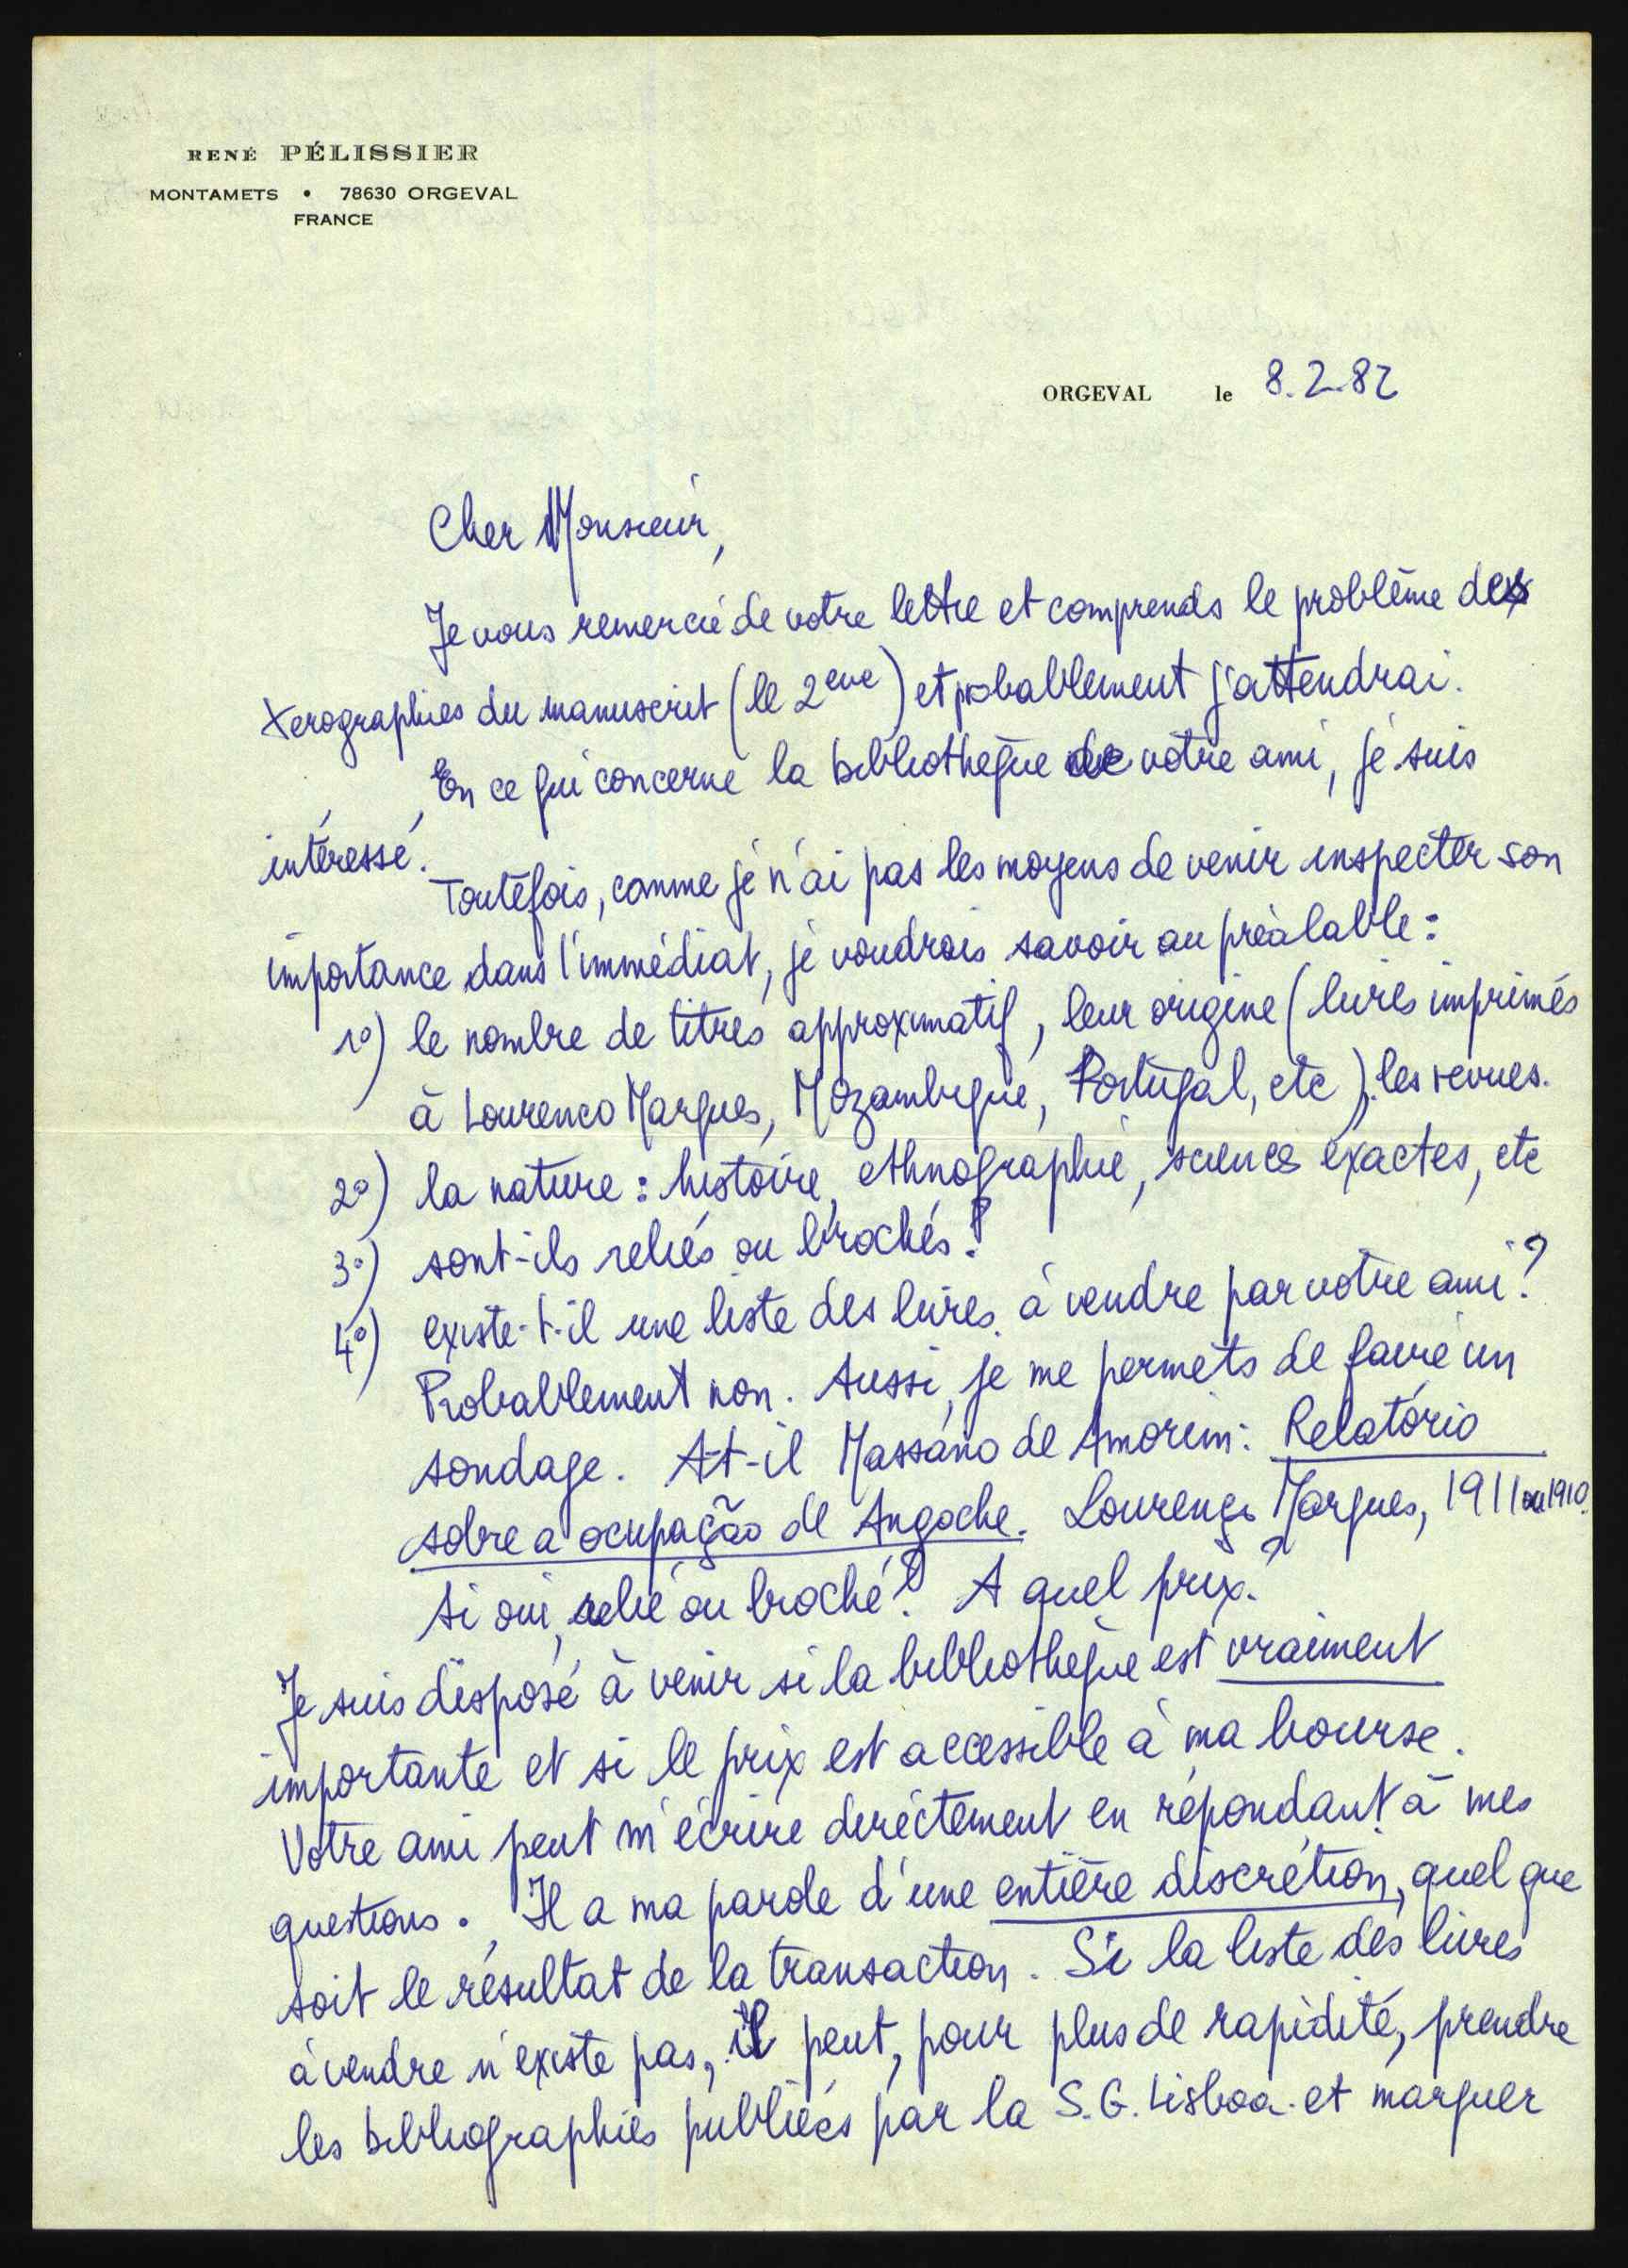 RENÉ PÉLISSIER
MONTAMETS • 78630 ORGEVAL
FRANCE
ORGEVAL le 8.2.82
Cher Monsieur,
Je vous remercie de votre lettre et comprends le problème des
xerographies du manuscrit (le 2eme) et probablement j'attendrai.
En ce qui concerne la bibliothèque de votre ami, je suis
intéressé.
Toutefois, comme je n'ai pas les moyens de venir inspecter son
importance dans l'immédiat, je voudrais savoir au préalable :
1°) le nombre de titres approximatif, leur origine (livres imprimés
à Lourenco Marques, Mozambique, Portugal, etc), les revues.
2°) la nature : histoire, ethnographie, sciences exactes, etc
3°) sont-ils reliés ou brochés ?
4°) existe-t-il une liste des livres à vendre par votre ami ?
Probablement non. Aussi, je me permets de faire un
sondage. A-t-il Massano de Amorim : Relatório
sobre a ocupação de Angoche. Lourenço Marques, 1911 ou 1910.
Si oui, relié ou broché ? A quel prix ?
Je suis disposé à venir si la bibliothèque est vraiment
importante et si le prix est accessible à ma bourse.
Votre ami peut m'écrire directement en répondant à mes
questions. Il a ma parole d'une entière discrétion, quel que
soit le résultat de la transaction. Si la liste des livres
à vendre n'existe pas, il peut, pour plus de rapidité, prendre
les bibliographies publiées par la S.G. Lisboa et marquer